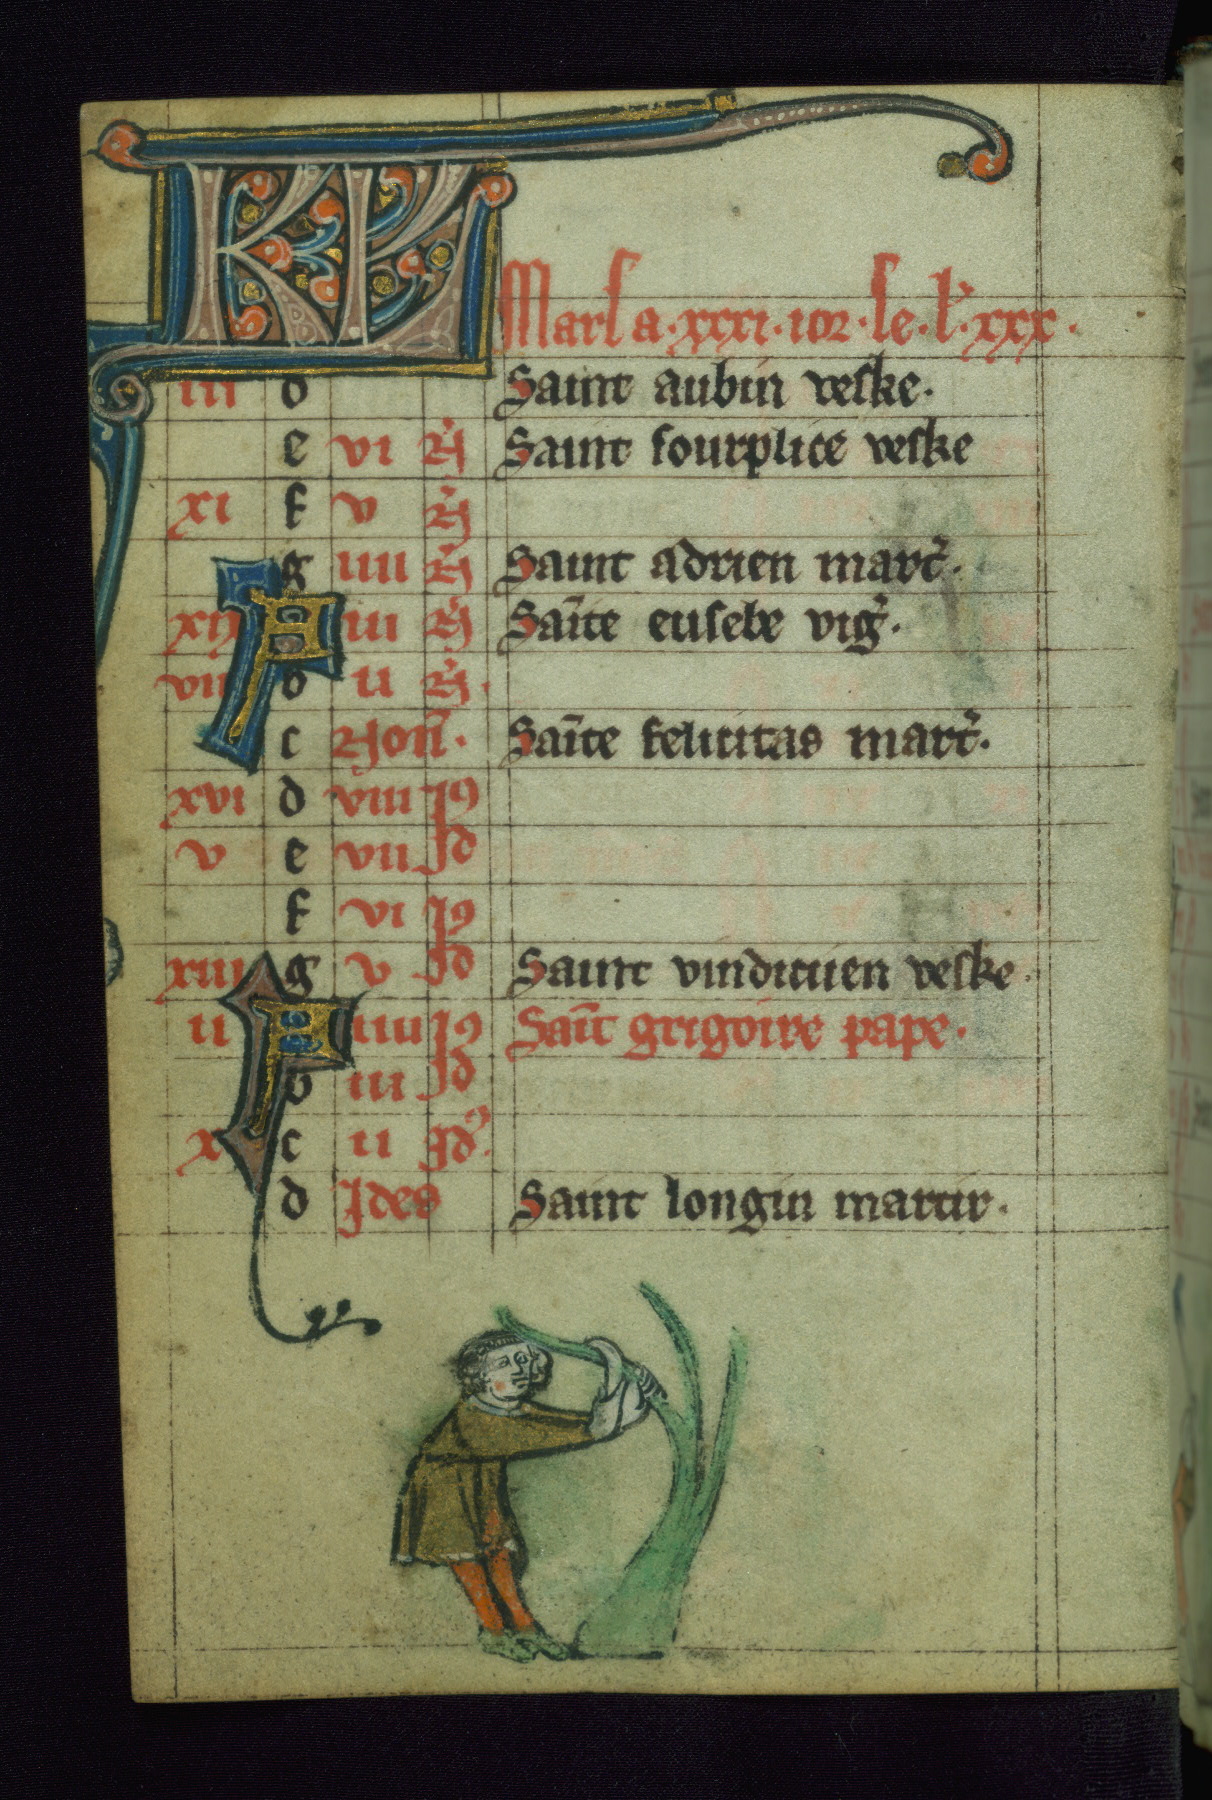 KL Mars a .xxxi. ior .se. l'. xxx.
iii d Saint aubin veske.
e vi N̄ Saint sourplice veske
xi f v N̄
g iiii N̄ Saint adrien mart̄.
xix A iii N̄ Sāīte eusebe vīḡ.
viii b ii N̄.
c Non̄. Sāīte felicitas mart̄.
xvi d viii Id
v e vii Id
f vi Id
xiii g v Id Saint vindicien veske.
ii A iiii Id Saīt grigoire pape.
b iii Id
x c ii Id'.
d Ides Saint longin martir.